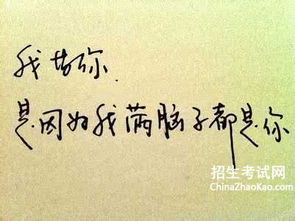 我你
是因为我满脑子都是你
招生考试网
ChinaZhaoKao.com